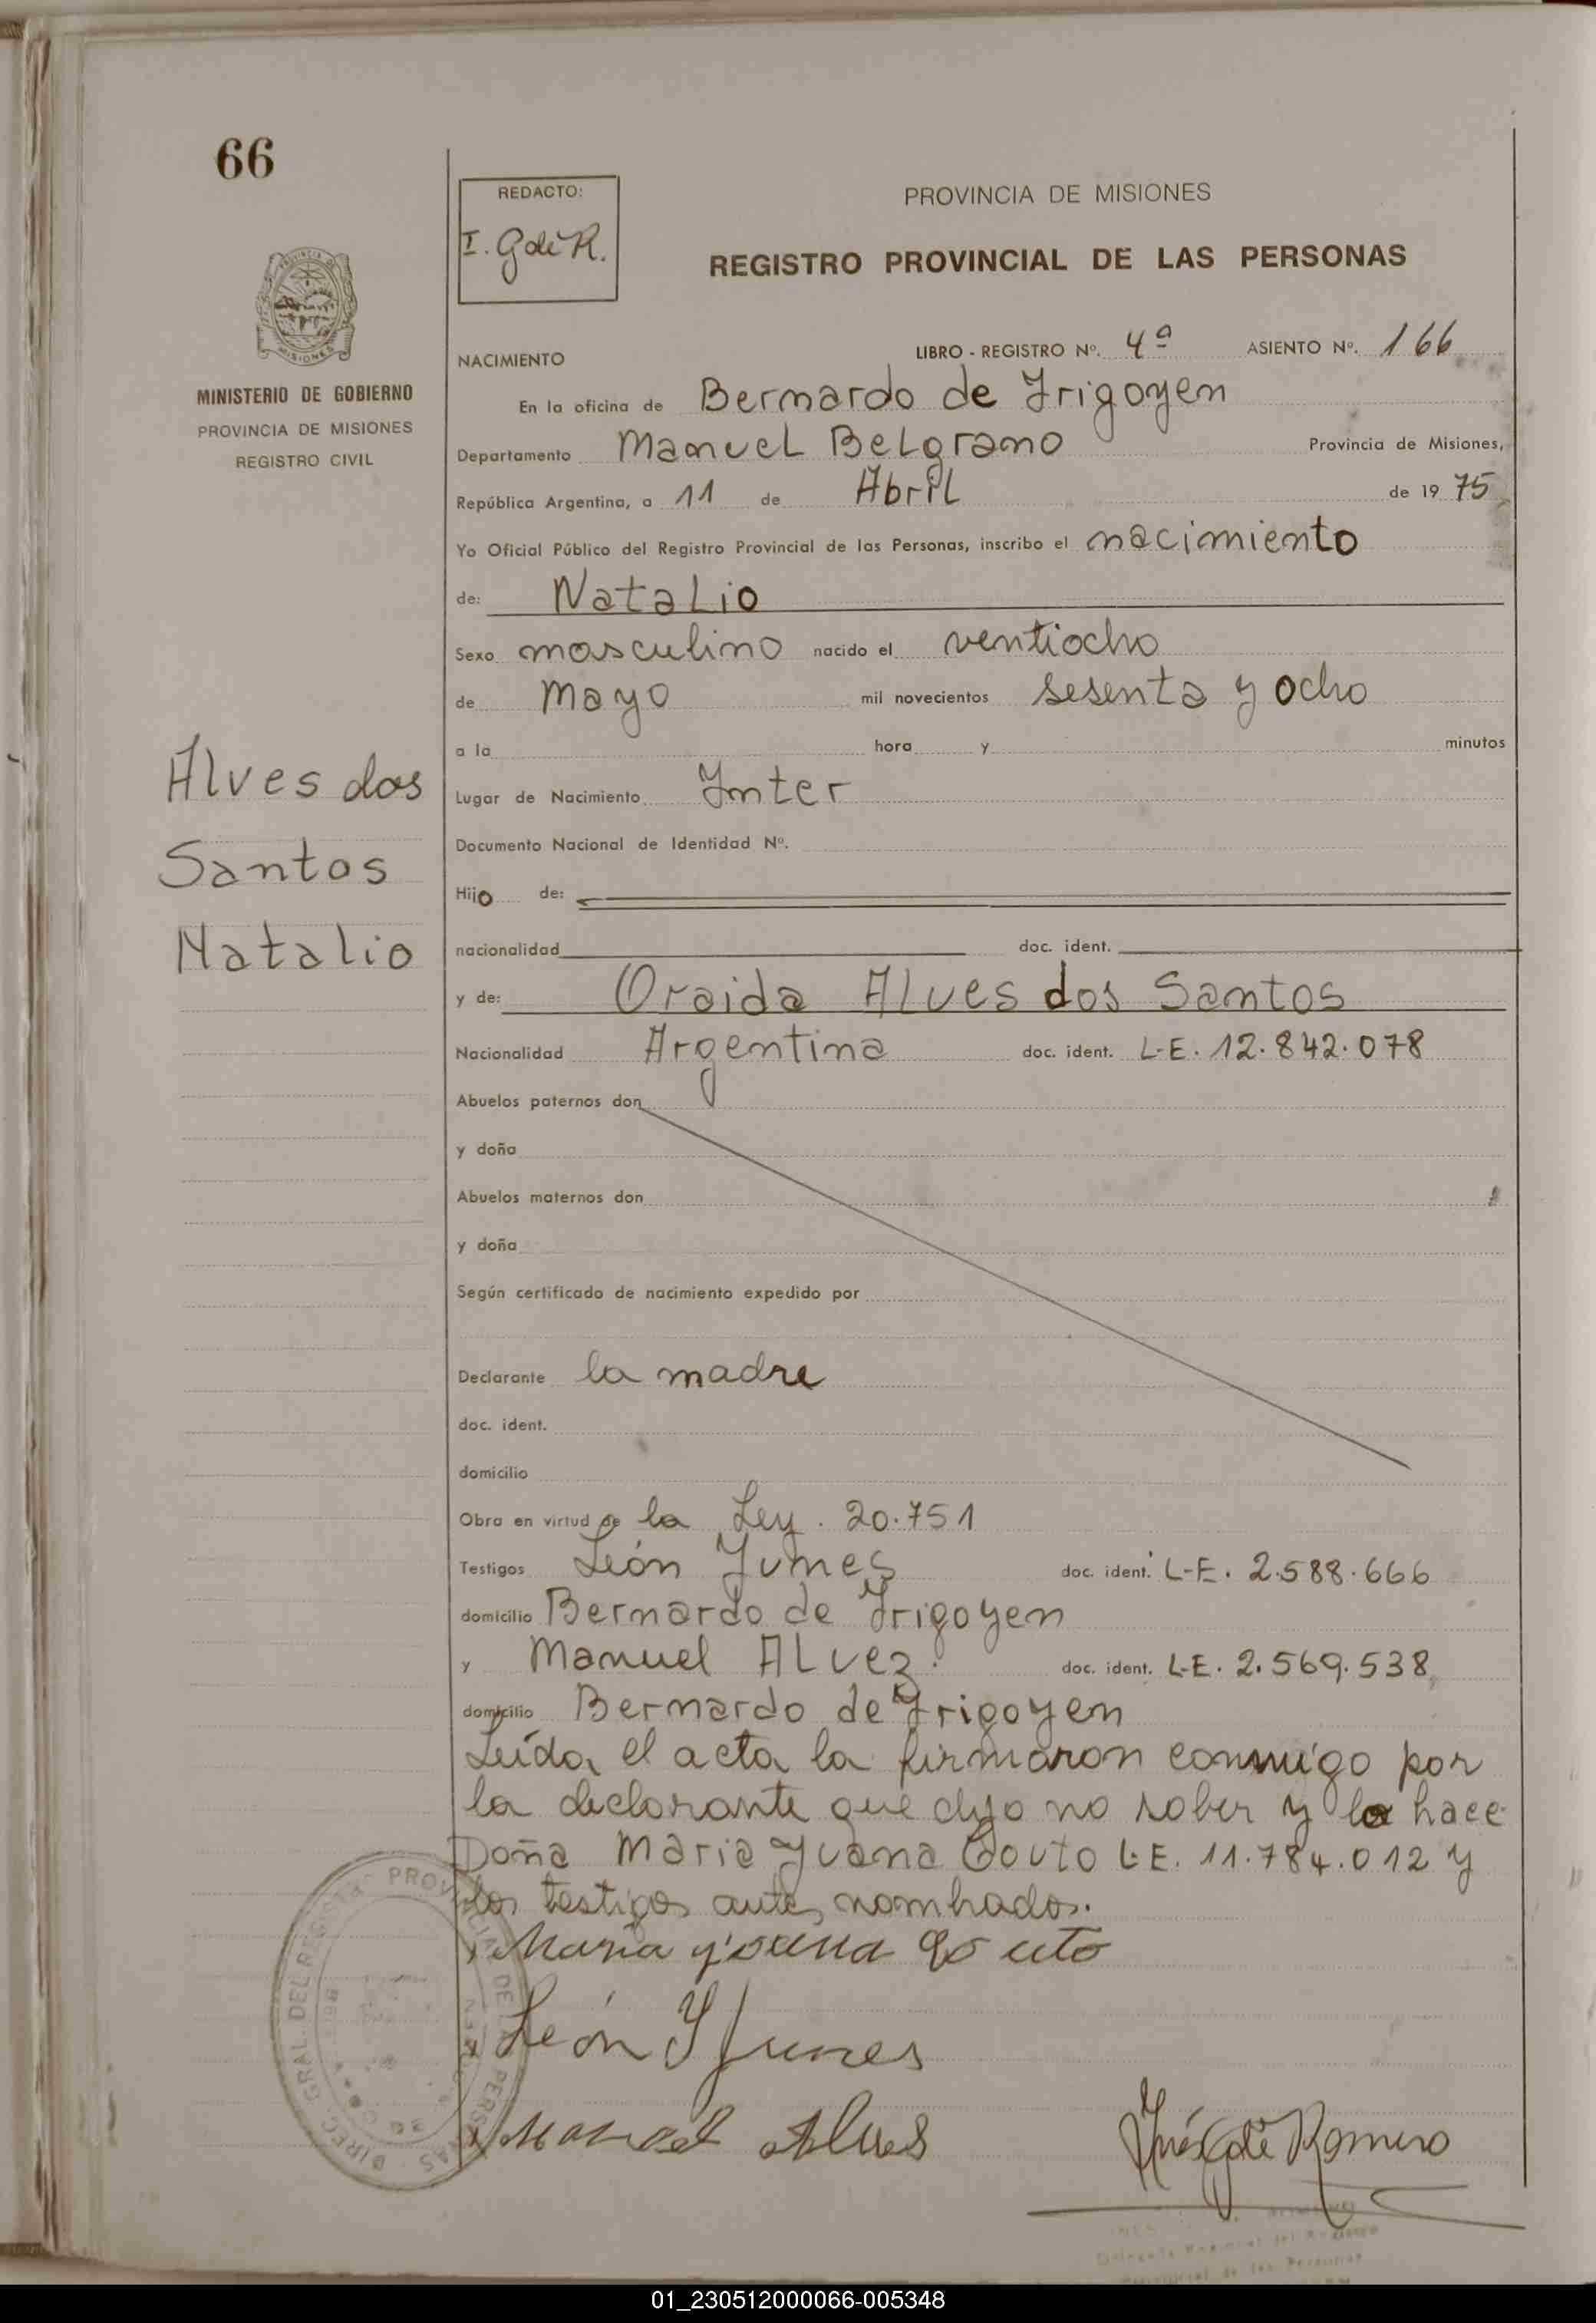 66
REDACTO:
I. G de R.
PROVINCIA DE MISIONES
REGISTRO PROVINCIAL DE LAS PERSONAS
MISIONES
MINISTERIO DE GOBIERNO
PROVINCIA DE MISIONES
REGISTRO CIVIL
NACIMIENTO LIBRO - REGISTRO Nº. 4ª ASIENTO Nº. 166
En la oficina de Bernardo de Yrigoyen
Departamento Manuel Belgrano Provincia de Misiones,
República Argentina, a 11 de Abril de 19 75
Yo Oficial Público del Registro Provincial de las Personas, inscribo el nacimiento
de: Natalio
Sexo masculino nacido el ventiocho
de mayo mil novecientos sesenta y ocho
a la hora y minutos
Alves dos
Santos
Natalio
Lugar de Nacimiento Ynter
Documento Nacional de Identidad Nº.
Hijo de:
nacionalidad doc. ident.
y de: Oraida Alves dos Santos
Nacionalidad Argentina doc. ident. L-E. 12.842.078
Abuelos paternos don
y doña
Abuelos maternos don
y doña
Según certificado de nacimiento expedido por
Declarante la madre
doc. ident.
domicilio
Obra en virtud de la Ley. 20.751
Testigos León Yumes doc. ident. L-E. 2.588.666
domicilio Bernardo de Yrigoyen
y Manuel Alvez. doc. ident. L-E. 2.569.538
domicilio Bernardo de Yrigoyen
Leída el acta la firmaron conmigo por
la declarante que dijo no saber y lo hace
Doña Maria Yuana Couto L.E. 11.784.012 y
los testigos antes nombrados.
Maria
León
Manoel Alves
Inés G de Romero
DIREC. GRAL. DEL REGISTRO PROVINCIAL DE LAS PERSONAS
Delegada Regional del Registro
Provincial de las Personas
01_230512000066-005348